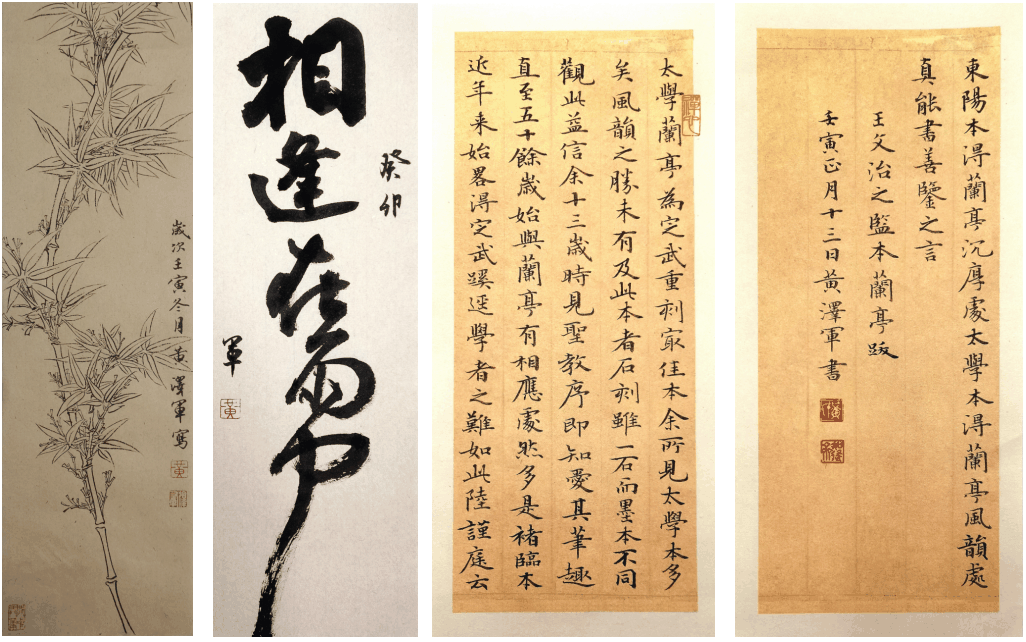 歲次壬寅冬月黃澤軍寫
相逢在雨中
癸卯
軍
黃
太學蘭亭為定武重刻最佳本余所見太學本多
矣風韻之勝未有及此本者石刻雖一石而墨本不同
觀此益信余十三歲時見聖教序即知愛其筆趣
直至五十餘歲始與蘭亭有相應處然多是褚臨本
近年来始畧得定武蹊逕學者之難如此陸謹庭云
東陽本得蘭亭沉厚處太學本得蘭亭風韻處
真能書善鑒之言
王文治之監本蘭亭跋
壬寅正月十三日黃澤軍書